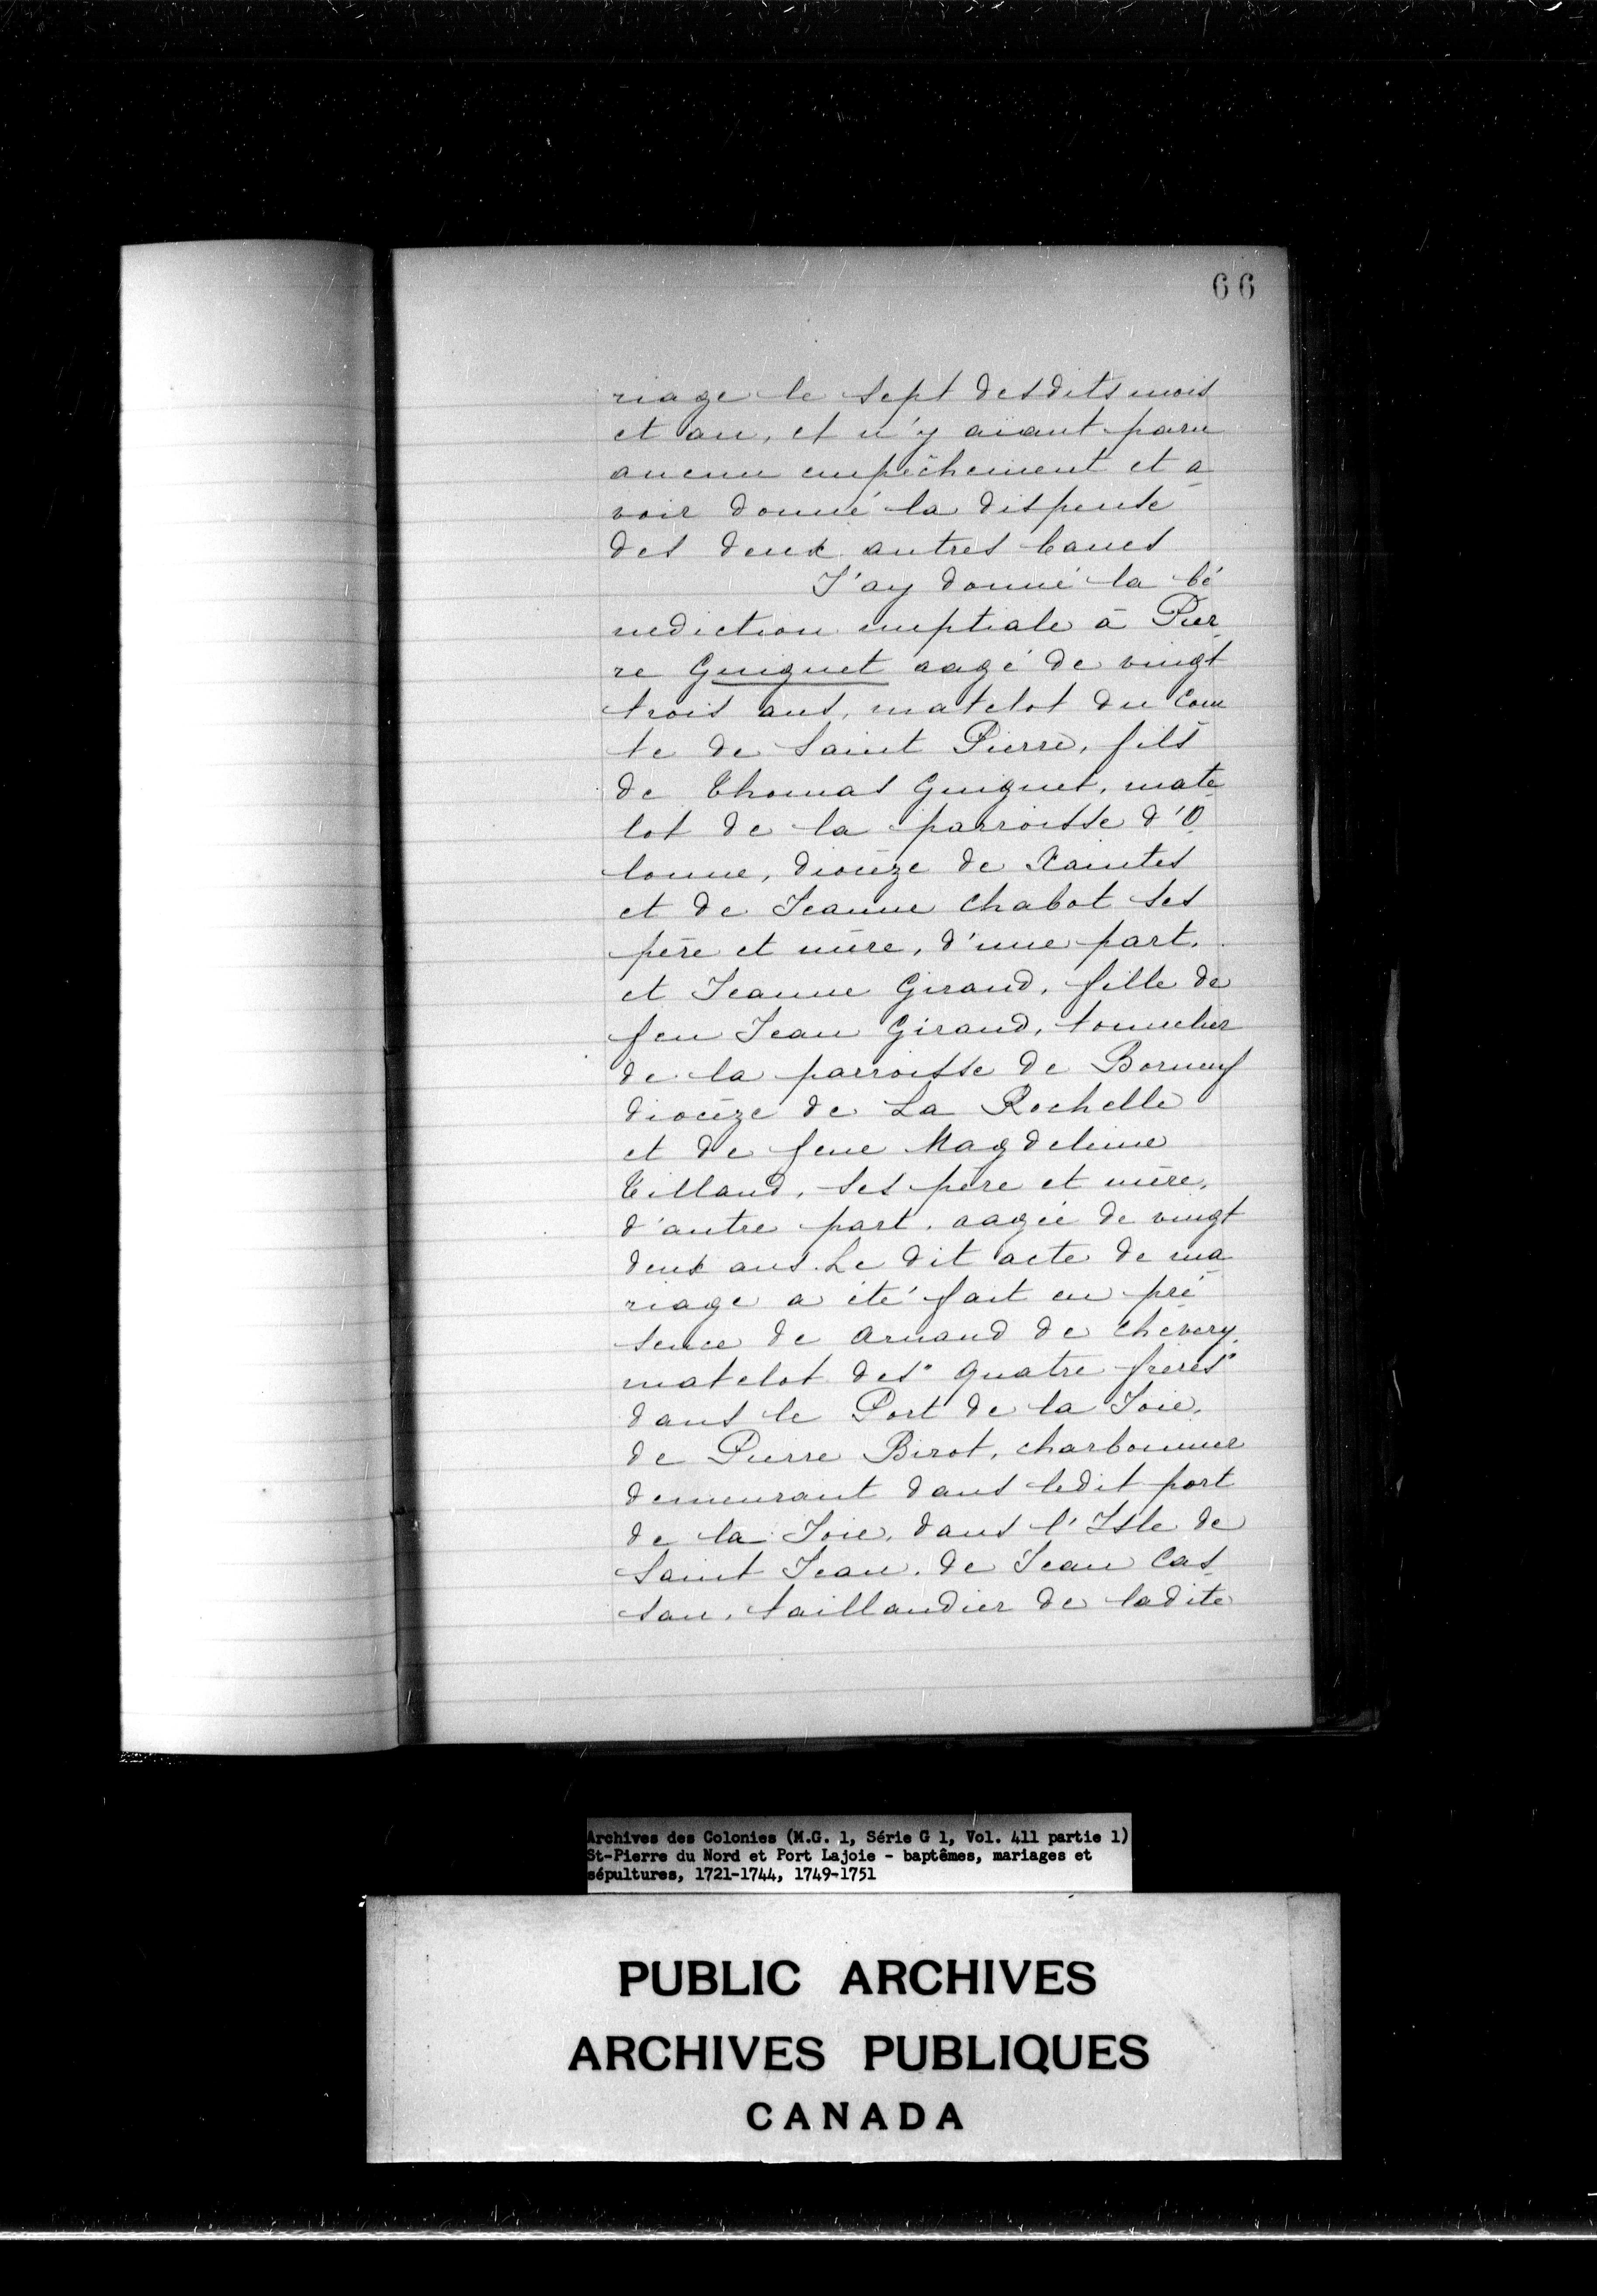 66
riage le sept desdits mois
et an, et n'y aiant paru
aucun empêchement et a
voir donné la dispense
des deux autres bancs
J'ay donné la bé
nediction nuptiale à Pier
re Guiguet aagé de vingt
trois ans, matelot du Com
te de Saint Pierre, fils
de Thomas Guiguet, mate
lot de la parroisse d'O
lonne, diocèze de Xaintes
et de Jeanne Chabot ses
père et mère, d'une part,
et Jeanne Giraud, fille de
feu Jean Giraud, tonnelier
de la parroisse de Borneuf
diocèze de La Rochelle
et de feue Magdeleine
Tillaud, ses père et mère,
d'autre part, aagée de vingt
deux ans. Le dit acte de ma
riage a été fait en pré
sence de Arnaud de Chevery,
matelot des "quatre frères"
dans le Port de la Joie,
de Pierre Birot, charbonnier
demeurant dans ledit port
de la Joie, dans l'Isle de
Saint Jean, de Jean Cas
san, taillandier de ladite
Archives des Colonies (M.G. 1, Série G 1, Vol. 411 partie 1)
St-Pierre du Nord et Port Lajoie - baptêmes, mariages et
sépultures, 1721-1744, 1749-1751
PUBLIC ARCHIVES
ARCHIVES PUBLIQUES
CANADA